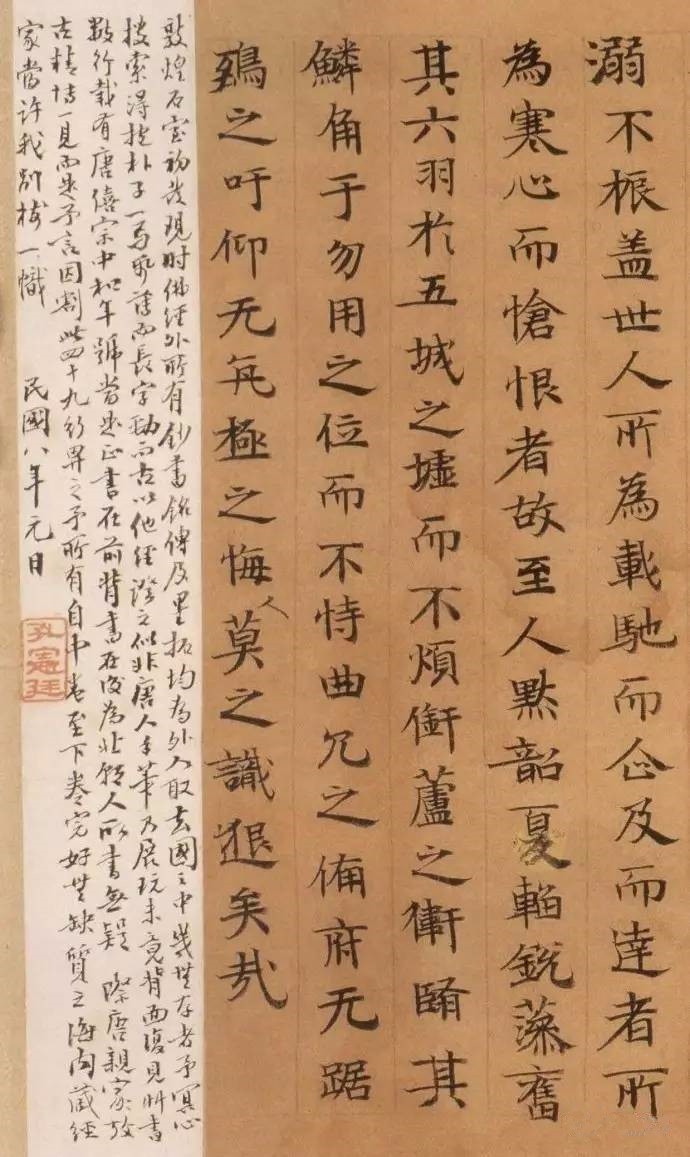 溺不振盖世人所为载驰而企及而達者所
為寒心而愴恨者故至人黙韶夏韜銳藻奮
其六羽於五城之墟而不煩銜蘆之衛翳其
鱗角于勿用之位而不恃曲穴之備府无踞
鵄之吁仰无亢極之悔人莫之識邈矣哉
敦煌石室初发現时佛经外所有鈔書銘傳及墨拓均为外人取去國之中幾世存者予冥心
搜索得抱朴子一写承舊而長字勁而古以他经證之似非唐人手筆乃展玩未竟背面復見此書
数行載有唐僖宗中和年號当是正書在前背書在後为北魏人所書無疑 際唐親家放
古精博一見而是予言因割此四十九行畀之予所有自中卷至下卷完好無缺質之海内藏经
家当许我别樹一幟 民國八年元日
孔憲廷